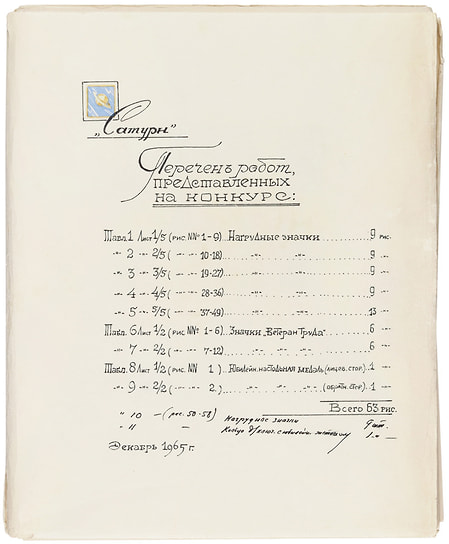 „Сатурн"
Перечень работ,
представленных
на конкурс:
Табл.1 Лист 1/5 (рис. №№ 1-9) Нагрудные значки .......... 9 рис.
-"- 2 -"- 2/5 ( -"- -"- 10-18) .... -"- -"- .......... 9 -"-
-"- 3 -"- 3/5 ( -"- -"- 19-27) .... -"- -"- .......... 9 -"-
-"- 4 -"- 4/5 ( -"- -"- 28-36) .... -"- -"- .......... 9 -"-
-"- 5 -"- 5/5 ( -"- -"- 37-49) .... -"- -"- .......... 13 -"-
Табл. 6 Лист 1/2 (рис. №№ 1-6). Значки „Ветеран Труда" ...... 6 -"-
-"- 7 -"- 2/2 ( -"- -"- 7-12) .... -"- -"- .......... 6 -"-
Табл. 8 Лист 1/2 (рис. №№ 1) Юбилейн. настольная медаль (лицов. стор.) .1 -"-
-"- 9 -"- 2/2 ( -"- -"- 2.) -"- -"- -"- (обратн. стор.) .1 -"-
Всего 63 рис.
" 10 - (рис. 50-58) Нагрудные значки 9 шт.
" 11 - 1.-
Декабрь 1965 г.